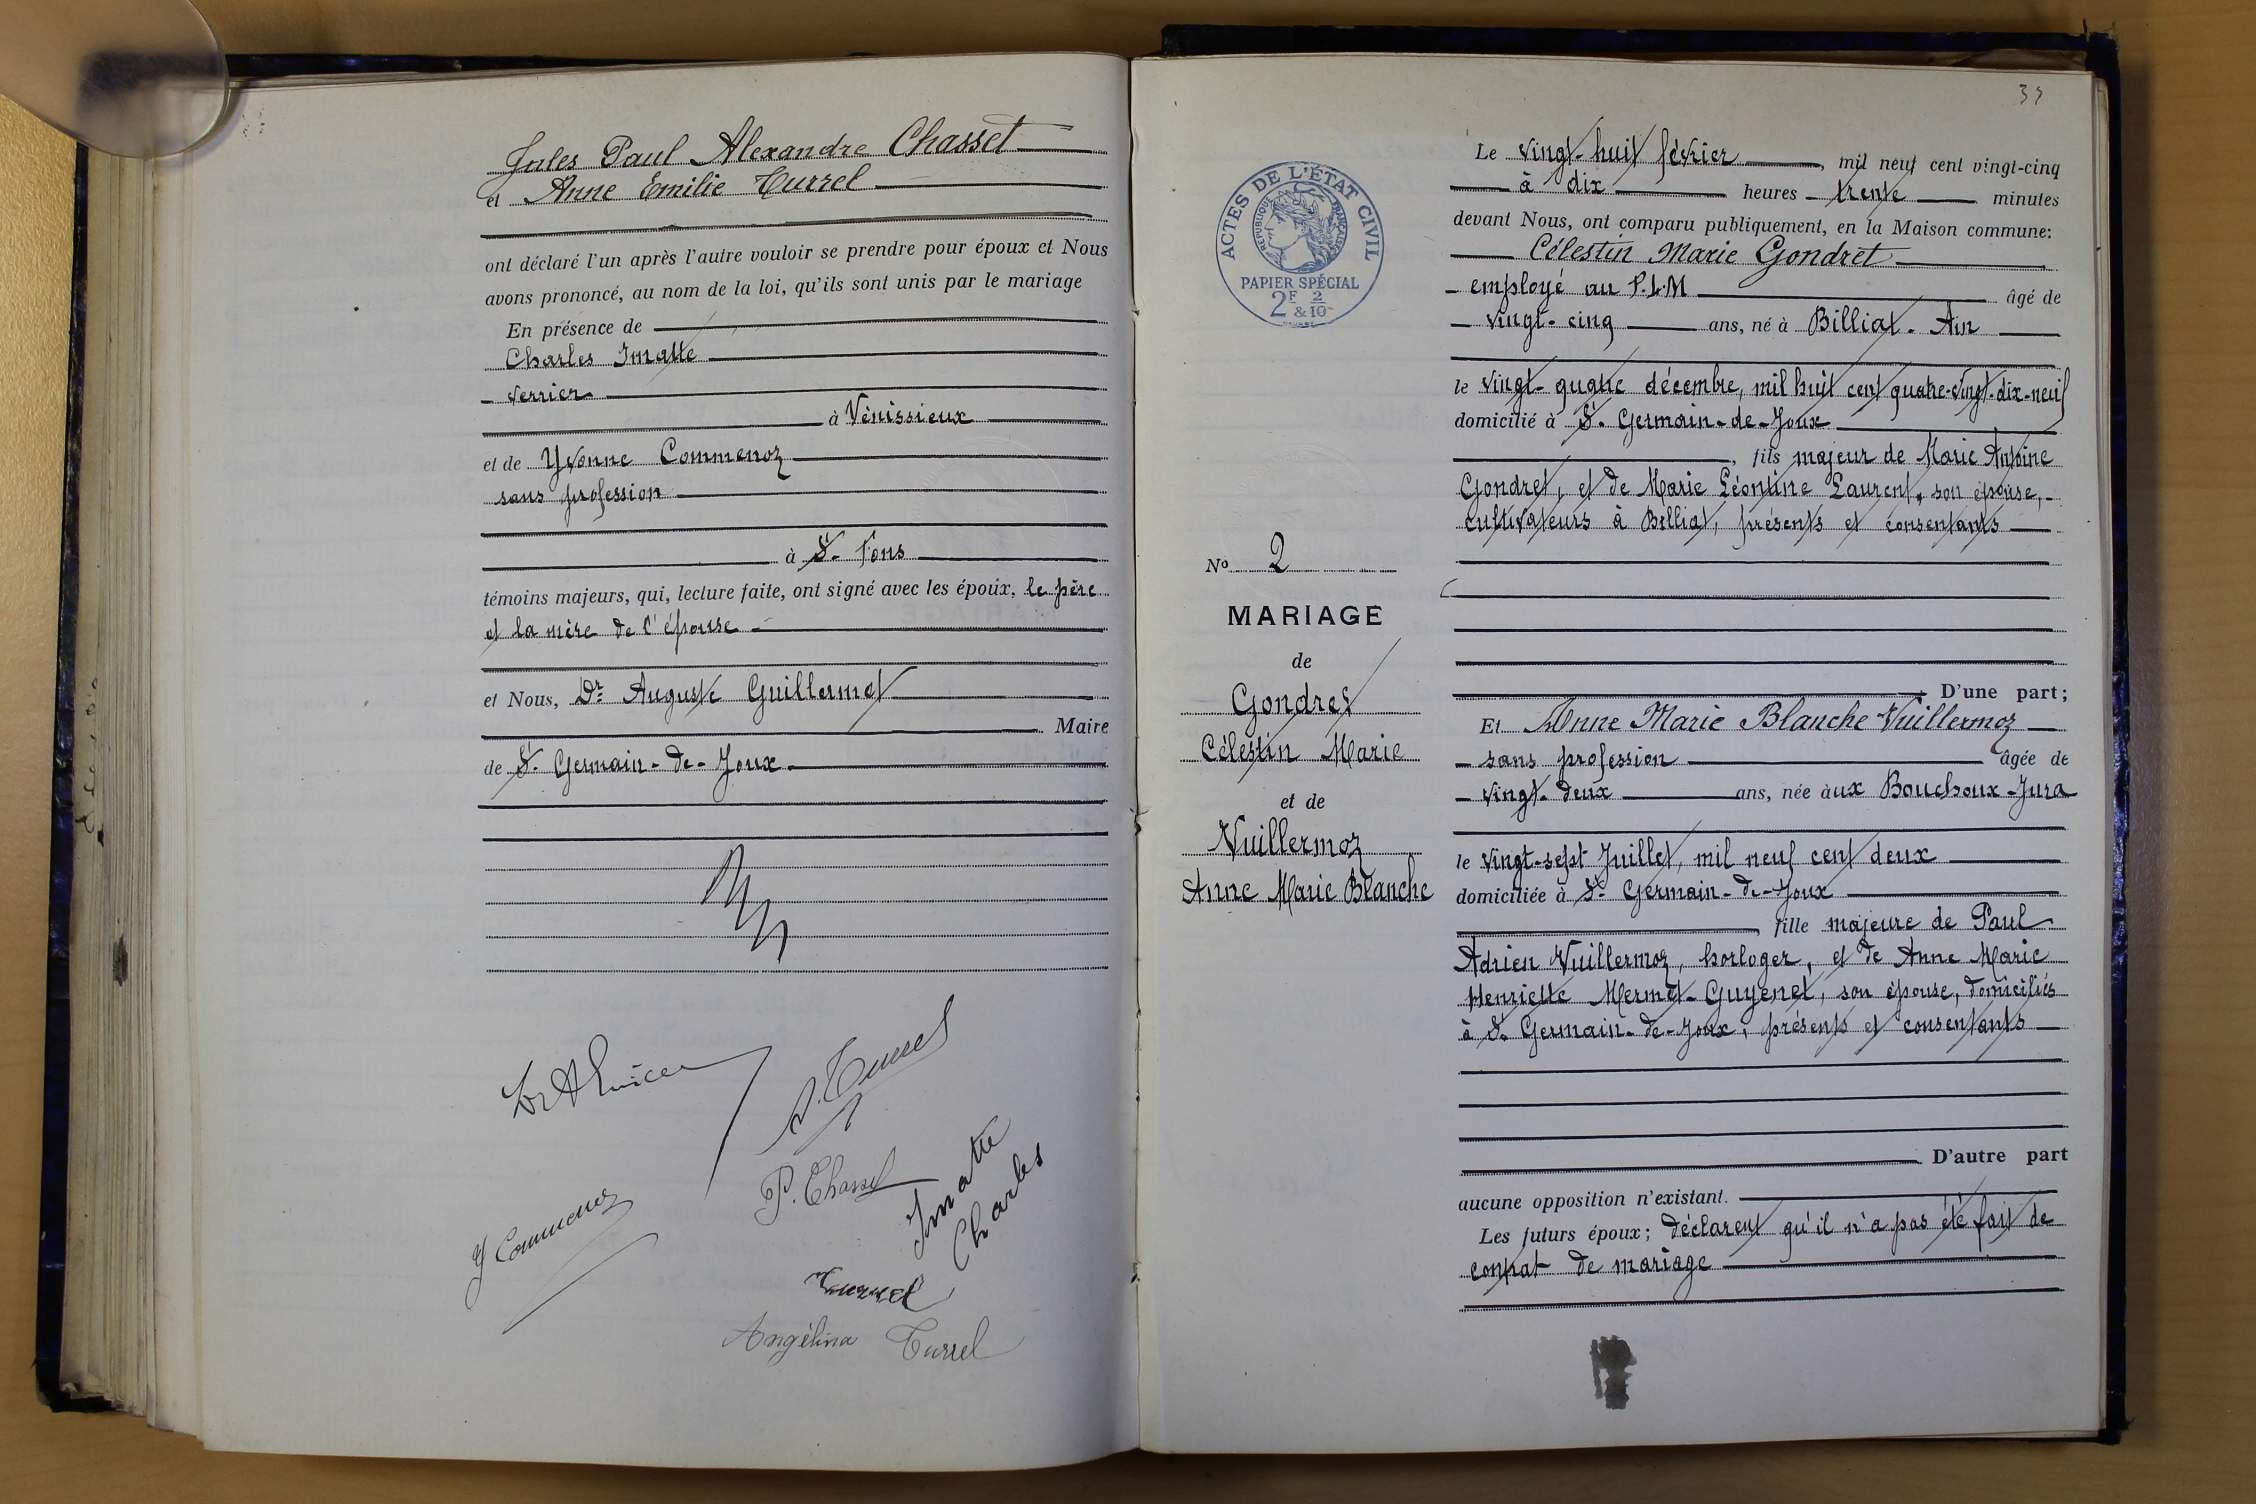 Jules Paul Alexandre Chasset
et Anne Emilie Turrel
ont déclaré l'un après l'autre vouloir se prendre pour époux et Nous
avons prononcé, au nom de la loi, qu'ils sont unis par le mariage
En présence de
Charles Imatte
verrier
à Vénissieux
et de Yvonne Commenoz
sans profession
à St. Fons
témoins majeurs, qui, lecture faite, ont signé avec les époux, le père
et la mère de l'épouse
et Nous, Dr Auguste Guillermet
Maire
de St. Germain-de-Joux
A. Turrel
P. Chasset
Imatte
Charles
Y Commenoz
Turrel
Angélina Turrel
ACTES DE L'ÉTAT CIVIL
RÉPUBLIQUE FRANÇAISE
PAPIER SPÉCIAL
2F & 2/10
No 2
MARIAGE
de
Gondret
Célestin Marie
et de
Vuillermoz
Anne Marie Blanche
Le vingt-huit février, mil neuf cent vingt-cinq
à dix heures trente minutes
devant Nous, ont comparu publiquement, en la Maison commune:
Célestin Marie Gondret
employé au P.L.M âgé de
vingt-cinq ans, né à Billiat. Ain
le vingt-quatre décembre, mil huit cent quatre-vingt-dix-neuf
domicilié à St. Germain-de-Joux
, fils majeur de Marie Antoine
Gondret, et de Marie Léontine Laurent, son épouse,
cultivateurs à Billiat, présents et consentants
D'une part;
Et Anne Marie Blanche Vuillermoz
sans profession âgée de
vingt-deux ans, née aux Bouchoux-Jura
le vingt-sept Juillet, mil neuf cent deux
domiciliée à St. Germain-de-Joux
, fille majeure de Paul
Adrien Vuillermoz, horloger, et de Anne Marie
Henriette Mermet-Guyenet, son épouse, domiciliés
à St. Germain-de-Joux, présents et consentants
D'autre part
aucune opposition n'existant.
Les futurs époux; déclarent qu'il n'a pas été fait de
contrat de mariage